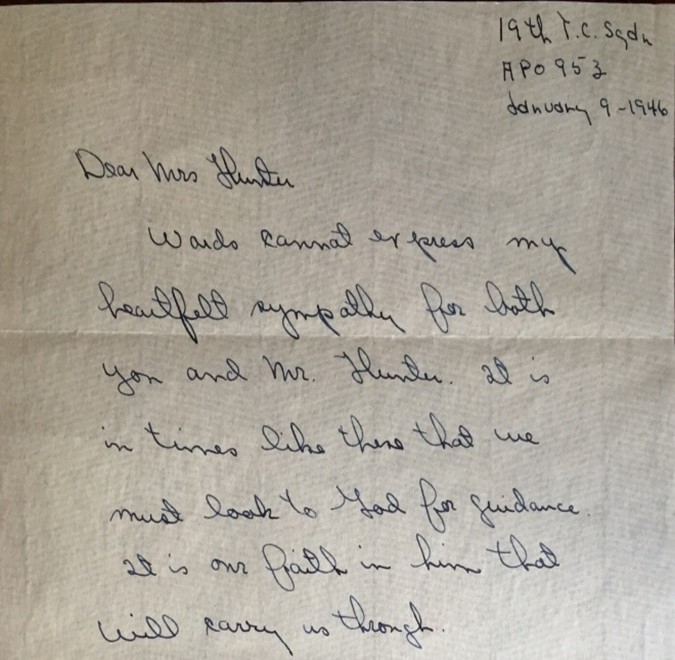 19th T.C. Sqdn
APO 953
January 9-1946
Dear Mrs Hunter
Words cannot express my
heartfelt sympathy for both
you and Mr. Hunter. It is
in times like these that we
must look to God for guidance.
It is our faith in him that
will carry us through.